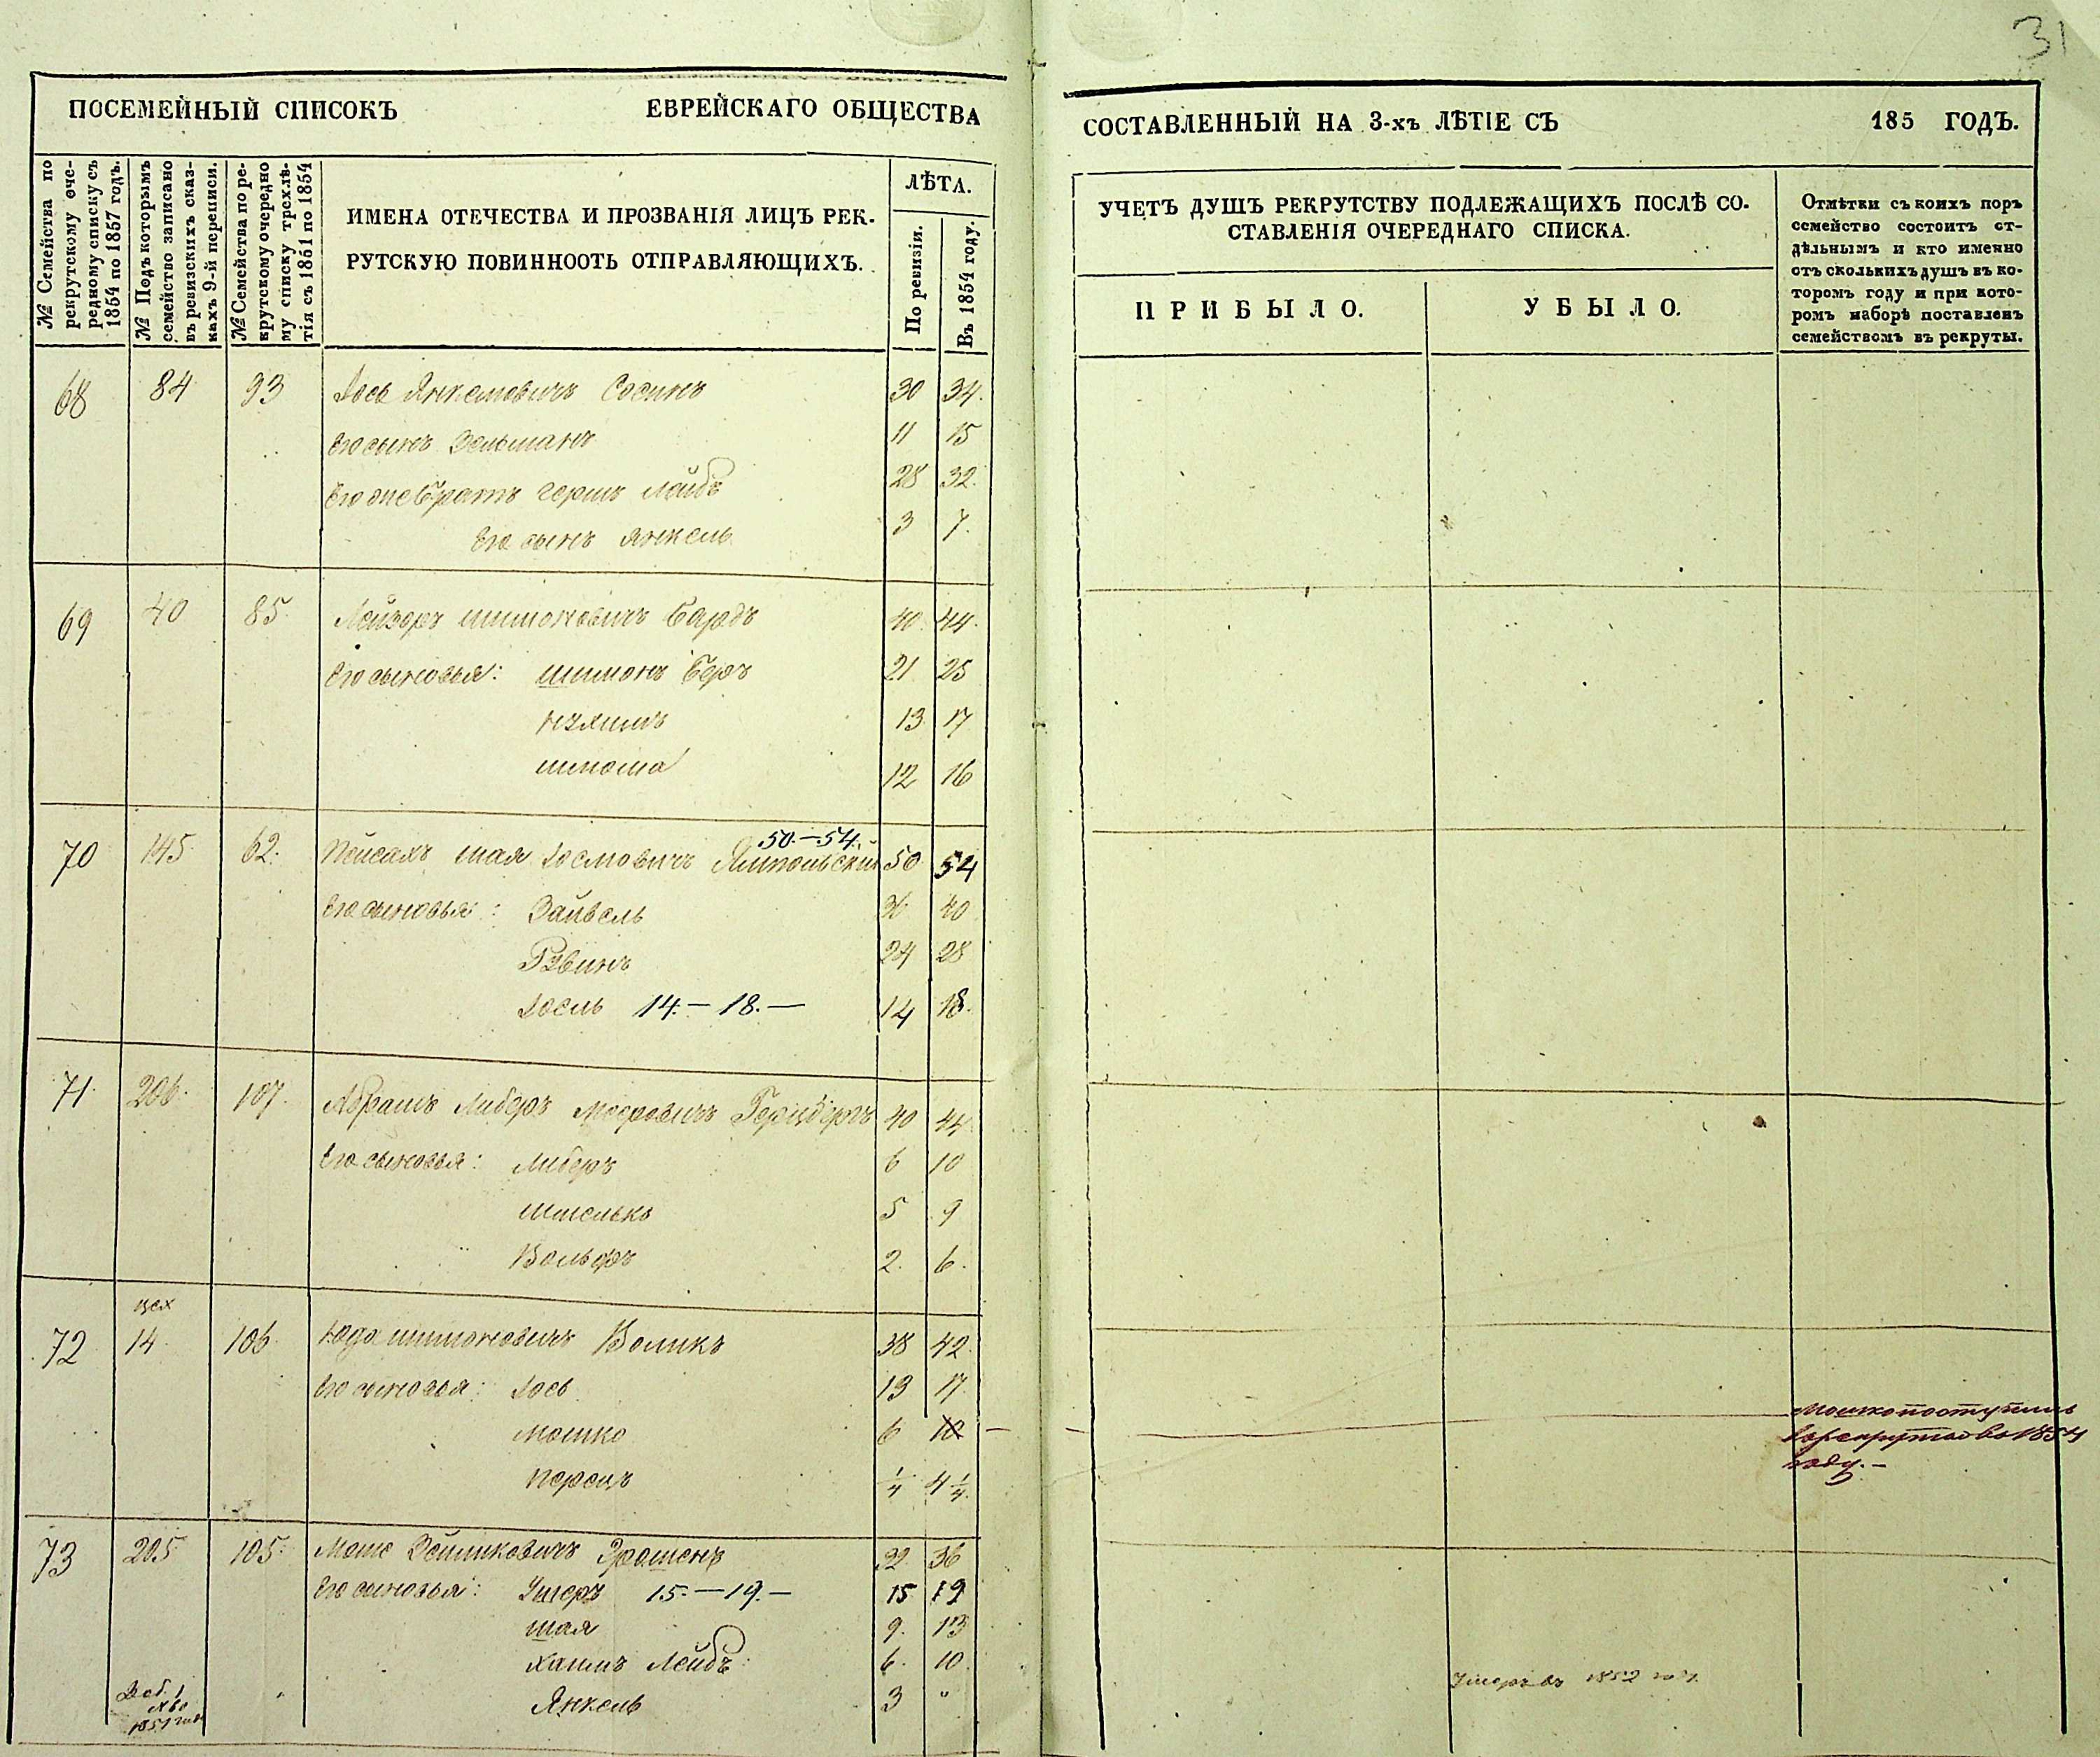 31
ПОСЕМЕЙНЫЙ СПИСОКЪ ЕВРЕЙСКАГО ОБЩЕСТВА
СОСТАВЛЕННЫЙ НА 3-хъ ЛѢТІЕ СЪ 185 ГОДЪ.
№ Семейства по
рекрутскому оче-
редному списку съ
1854 по 1857 годъ.
№ Подъ которымъ
семейство записано
въ ревизскихъ сказ-
кахъ 9-й переписи.
№ Семейства по ре-
крутскому очередно
му списку трехлѣ-
тія съ 1851 по 1854
ИМЕНА ОТЕЧЕСТВА И ПРОЗВАНІЯ ЛИЦЪ РЕК-
РУТСКУЮ ПОВИННООТЬ ОТПРАВЛЯЮЩИХЪ.
ЛѢТА.
По ревизіи.
Въ 1854 году.
УЧЕТЪ ДУШЪ РЕКРУТСТВУ ПОДЛЕЖАЩИХЪ ПОСЛѢ СО-
СТАВЛЕНІЯ ОЧЕРЕДНАГО СПИСКА.
ПРИБЫЛО.
УБЫЛО.
Отмѣтки съ коихъ поръ
семейство состоитъ от-
дѣльнымъ и кто именно
отъ сколькихъ душъ въ ко-
торомъ году и при кото-
ромъ наборѣ поставленъ
семействомъ въ рекруты.
68 84 93 Іось Янкелевичъ Сосинъ 30 34.
Его сынъ Зельманъ 11 15
Его же братъ Герш Лейбъ 28 32.
Его сынъ Янкель 3 7.
69 40 85 Лейзоръ Шимоновичъ Бардъ 40 44.
Его сыновья: Шимонъ Беръ 21 25
13 17
12 16
50.—54.
70 145 62. Пейсахъ Шая Іослювичъ Ямпольскій 50 54
Его сыновья: Зайвель 36 40
Рувинъ 24 28
Іосль 14.—18.— 14 18.
71. 206. 107. Абрамъ Либеръ Мееровичъ Герцберъ 40 44
Его сыновья: Либеръ 6 10
Шмелько 5 9
Вольфъ 2. 6.
цех
72 14 106 Юда Шимоновичъ Воликъ 38 42.
Его сыновья: Іось 13 17
Мошко 6 10 —
Перецъ 1/4 4 1/4.
Мошко поступилъ
въ рекруты въ 1854
году.—
73 205 105. Моше Зейликовичъ 32 36
Его сыновья: Ушеръ 15.—19.— 15 19
Шая 9. 13
Хаимъ Лейбъ 6. 10.
Янкель 3 "
Умеръ въ 1852 году.
1851 года